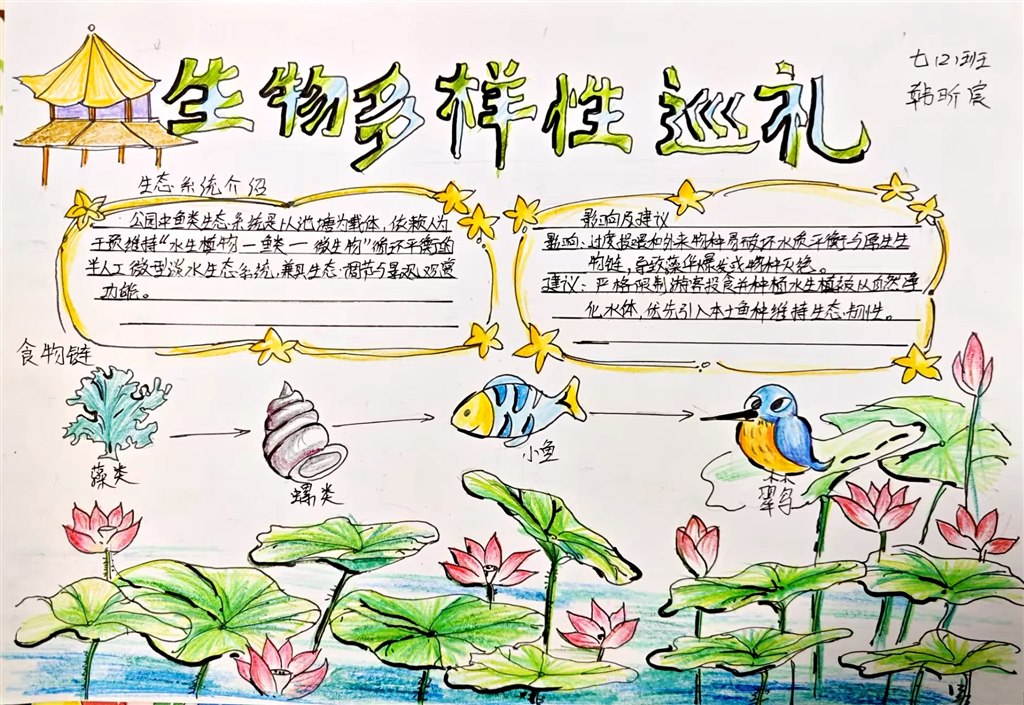 生物多样性巡礼
七(2)班
韩昕宸
生态系统介绍
公园中鱼类生态系统是以池塘为载体，依赖人为
干预维持“水生植物—鱼类—微生物”循环平衡的
半人工微型淡水生态系统，兼具生态调节与景观观赏
功能。
影响及建议
影响：过度投喂和外来物种易破坏水质平衡与原生生
物链，导致藻华爆发或物种灭绝。
建议：严格限制游客投食并种植水生植被以自然净
化水体，优先引入本土鱼种维持生态韧性。
食物链
藻类
螺类
小鱼
翠鸟